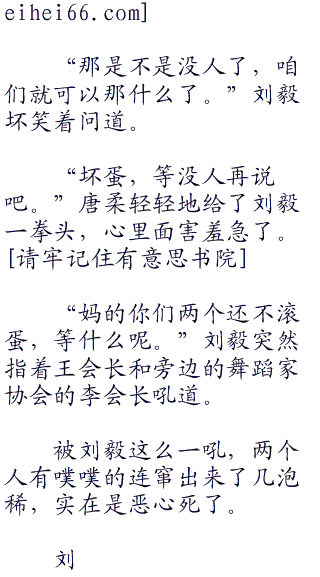 eihei66.com]
“那是不是没人了，咱
们就可以那什么了。”刘毅
坏笑着问道。
“坏蛋，等没人再说
吧。”唐柔轻轻地给了刘毅
一拳头，心里面害羞急了。
[请牢记住有意思书院]
“妈的你们两个还不滚
蛋，等什么呢。”刘毅突然
指着王会长和旁边的舞蹈家
协会的李会长吼道。
被刘毅这么一吼，两个
人有噗噗的连窜出来了几泡
稀，实在是恶心死了。
刘